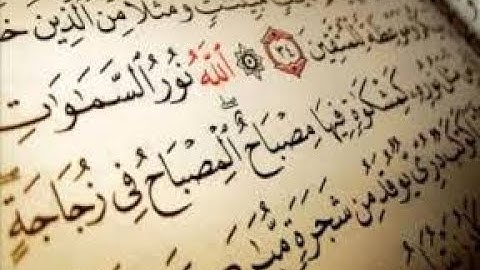 وَمَثَلًا مِّنَ الَّذِينَ
لِّلْمُتَّقِينَ ٣٤ اللَّهُ نُورُ السَّمَاوَاتِ
نُورِهِ كَمِشْكَوٰةٍ فِيهَا مِصْبَاحٌ الْمِصْبَاحُ فِي زُجَاجَةٍ
كَوْكَبٌ دُرِّيٌّ يُوقَدُ مِن شَجَرَةٍ